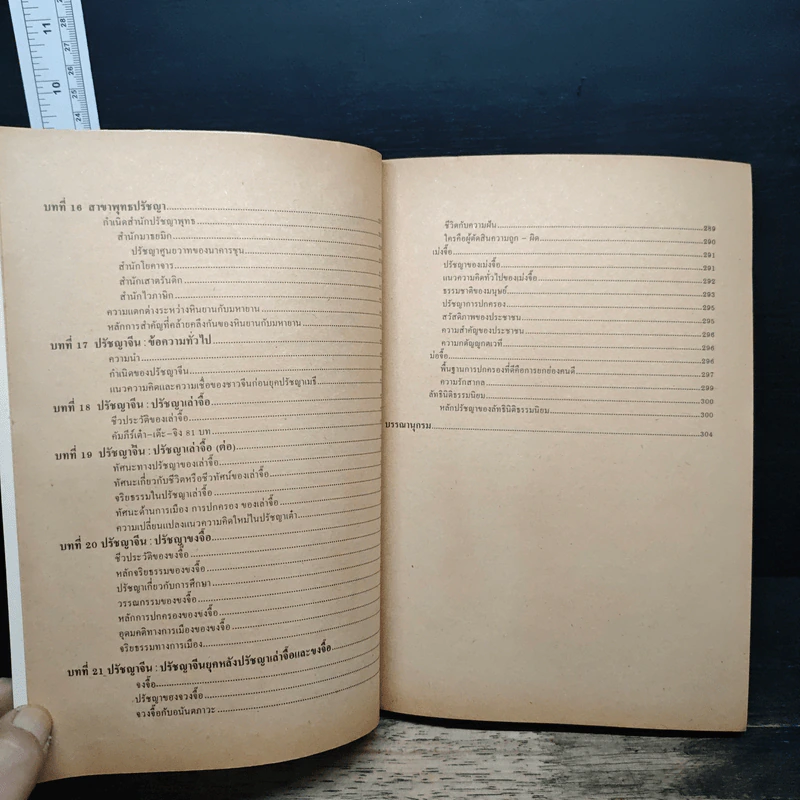 11
10
28
27
26
25
24
บทที่ 16 สาขาพุทธปรัชญา
กำเนิดสำนักปรัชญาพุทธ
สำนักมาธยมิก
ปรัชญาศูนยวาทของนาคารชุน
สำนักโยคาจาร
สำนักเสาตรันติก
สำนักไวภาษิก
ความแตกต่างระหว่างหินยานกับมหายาน
หลักการสำคัญที่คล้ายคลึงกันของหินยานกับมหายาน
บทที่ 17 ปรัชญาจีน : ข้อความทั่วไป
ความนำ
กำเนิดของปรัชญาจีน
แนวความคิดและความเชื่อของชาวจีนก่อนยุคปรัชญาเมธี
บทที่ 18 ปรัชญาจีน : ปรัชญาเล่าจื๊อ
ชีวประวัติของเล่าจื๊อ
คัมภีร์เต๋า-เต๊ะ-จิง 81 บท
บทที่ 19 ปรัชญาจีน : ปรัชญาเล่าจื๊อ (ต่อ)
ทัศนะทางปรัชญาของเล่าจื๊อ
ทัศนะเกี่ยวกับชีวิตหรือชีวทัศน์ของเล่าจื๊อ
จริยธรรมในปรัชญาเล่าจื๊อ
ทัศนะด้านการเมือง การปกครอง ของเล่าจื๊อ
ความเปลี่ยนแปลงแนวความคิดใหม่ในปรัชญาเต๋า
บทที่ 20 ปรัชญาจีน : ปรัชญาขงจื๊อ
ชีวประวัติของขงจื๊อ
หลักจริยธรรมของขงจื๊อ
ปรัชญาเกี่ยวกับการศึกษา
วรรณกรรมของขงจื๊อ
หลักการปกครองของขงจื๊อ
อุดมคติทางการเมืองของขงจื๊อ
จริยธรรมทางการเมือง
บทที่ 21 ปรัชญาจีน : ปรัชญาจีนยุคหลังปรัชญาเล่าจื๊อและขงจื๊อ
จวงจื๊อ
ปรัชญาของจวงจื๊อ
จวงจื๊อกับอนันตภาวะ
ชีวิตกับความฝัน 289
ใครคือผู้ตัดสินความถูก - ผิด 290
เม่งจื๊อ 291
ปรัชญาของเม่งจื๊อ 291
แนวความคิดทั่วไปของเม่งจื๊อ 292
ธรรมชาติของมนุษย์ 293
ปรัชญาการปกครอง 295
สวัสดิภาพของประชาชน 295
ความสำคัญของประชาชน 296
ความกตัญญูกตเวที 296
ม่อจื๊อ 296
พื้นฐานการปกครองที่ดีคือการยกย่องคนดี 297
ความรักสากล 299
ลัทธินิติธรรมนิยม 300
หลักปรัชญาของลัทธินิติธรรมนิยม 300
บรรณานุกรม 304